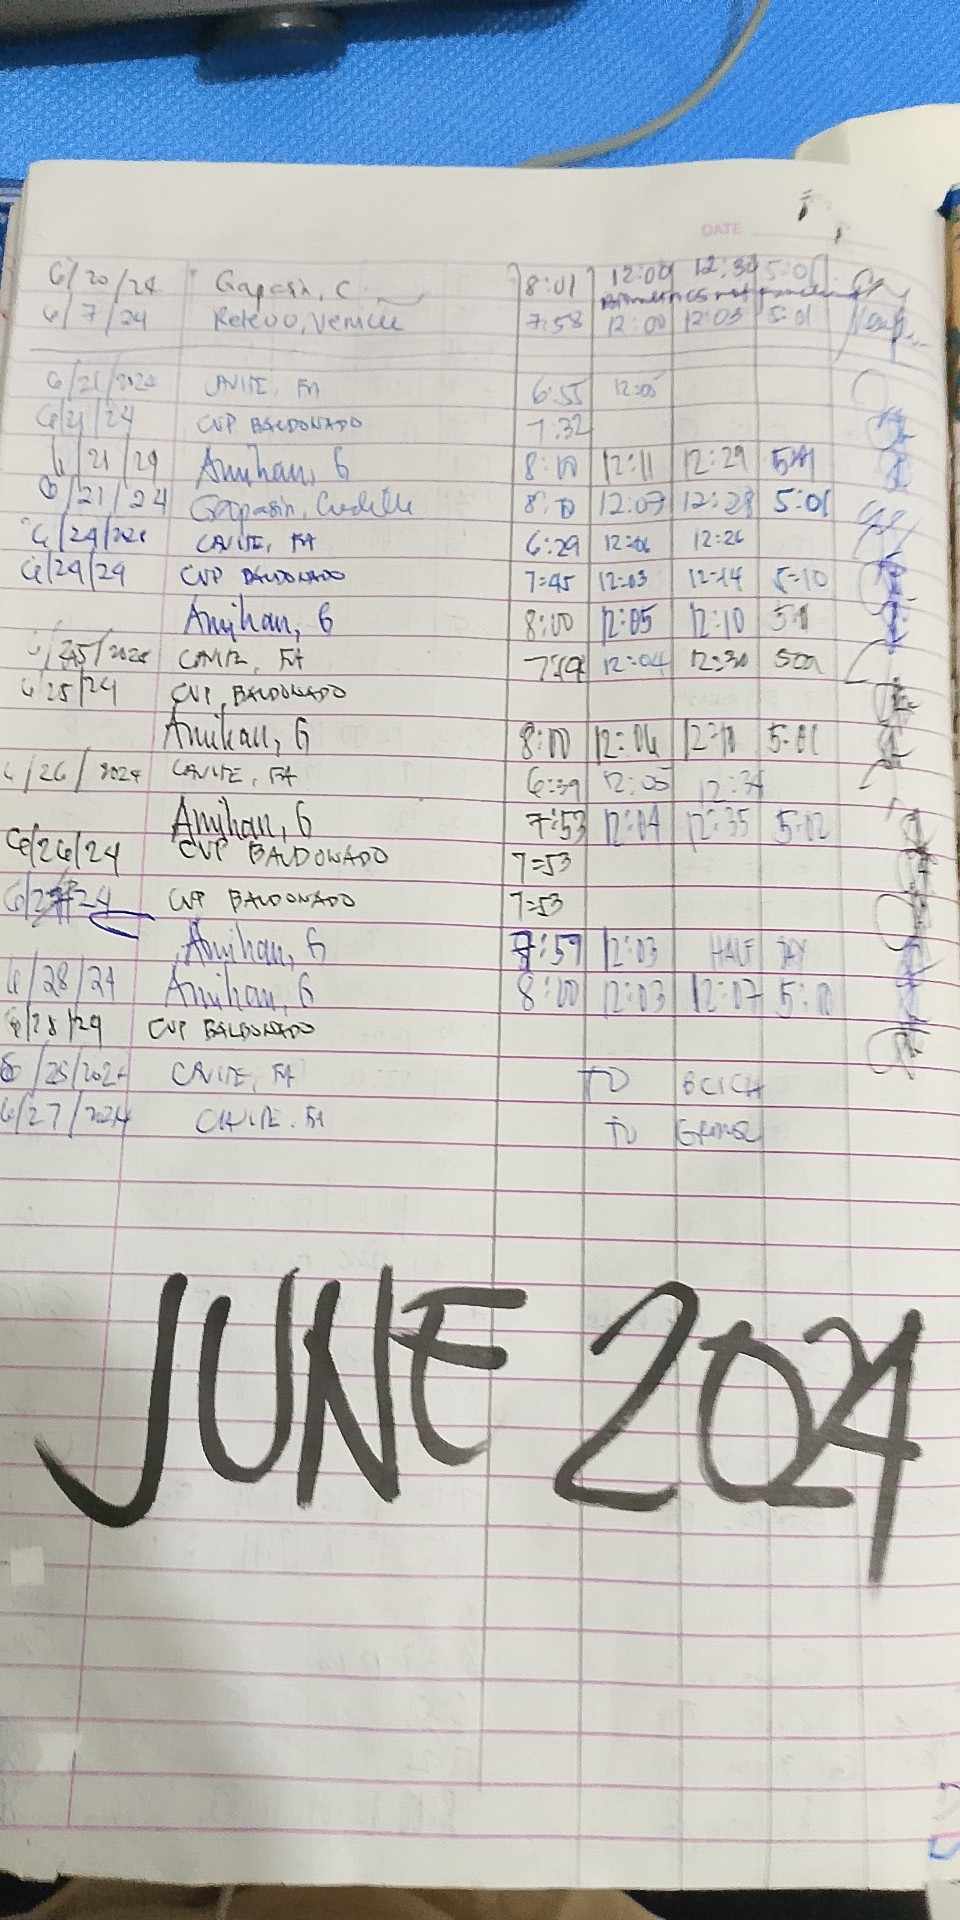 DATE
6/20/24 Gapasin, C. 8:01 12:09 12:30 5:01
Biometrics not functioning
6/7/24 Relevo, Venice 7:58 12:00 12:03 5:01
6/21/2024 CAVITE, FA 6:55 12:05
6/21/24 CVP BALDONADO 7:32
6/21/24 Amihan, G 8:00 12:11 12:29
6/21/24 Gapasin, 12:07 12:28 5:01
CAVITE, FA 6:29 12:06 12:26
6/24/24 CVP BALDONADO 7:45 12:03 12:14 5:10
Amihan, G 8:00 12:05 12:10
CAVITE, FA 12:04 12:30
6/25/24 CVP BALDONADO
Amihan, G 8:00 12:04 12:10 5:01
6/26/2024 CAVITE, FA 6:39 12:05 12:34
Amihan, G 7:53 12:04 12:35 5:02
6/26/24 CVP BALDONADO 7:53
6/27/24 CVP BALDONADO 7:53
Amihan, G 7:59 12:03 HALF DAY
6/28/24 Amihan, G 8:00 12:03 12:07 5:10
6/28/24 CVP BALDONADO
CAVITE, FA TO
6/27/2024 CAVITE, FA TO
JUNE 2024